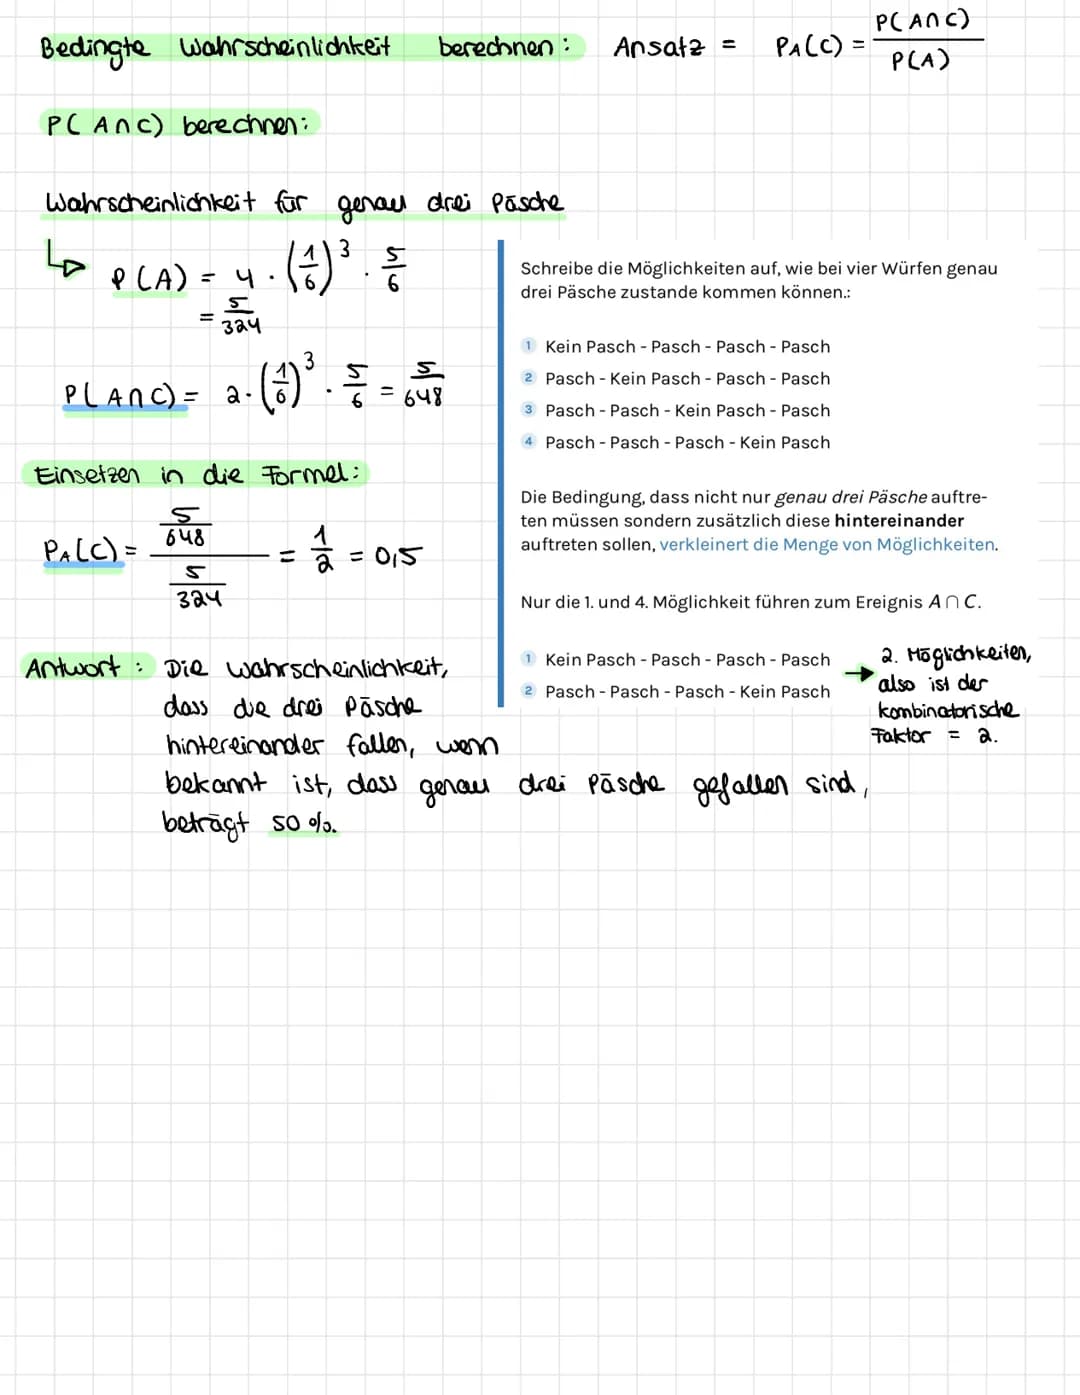 Bedingte Wahrscheinlichkeit berechnen: Ansatz = P_A(C) = P(A∩C) / P(A)
P(A∩C) berechnen:
Wahrscheinlichkeit für genau drei Päsche
↳ P(A) = 4 · (1/6)^3 · 5/6
= 5/324
P(A∩C) = 2 · (1/6)^3 · 5/6 = 5/648
Einsetzen in die Formel:
P_A(C) = (5/648) / (5/324) = 1/2 = 0,5
Schreibe die Möglichkeiten auf, wie bei vier Würfen genau
drei Päsche zustande kommen können.:
1 Kein Pasch - Pasch - Pasch - Pasch
2 Pasch - Kein Pasch - Pasch - Pasch
3 Pasch - Pasch - Kein Pasch - Pasch
4 Pasch - Pasch - Pasch - Kein Pasch
Die Bedingung, dass nicht nur genau drei Päsche auftre-
ten müssen sondern zusätzlich diese hintereinander
auftreten sollen, verkleinert die Menge von Möglichkeiten.
Nur die 1. und 4. Möglichkeit führen zum Ereignis A∩C.
1 Kein Pasch - Pasch - Pasch - Pasch
2 Pasch - Pasch - Pasch - Kein Pasch
→ 2. Möglichkeiten,
also ist der
kombinatorische
Faktor = 2.
Antwort: Die Wahrscheinlichkeit,
dass die drei Päsche
hintereinander fallen, wenn
bekannt ist, dass genau drei Päsche gefallen sind,
beträgt 50 %.